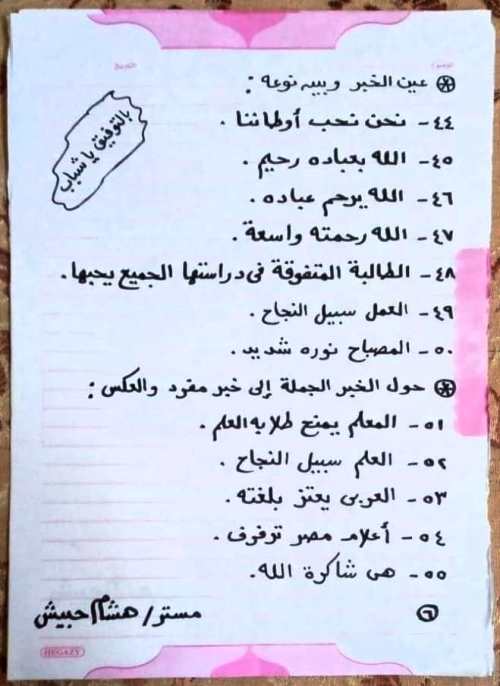 عين الخبر وبين نوعه :
٤٤ - نحن نحب أوطاننا .
٤٥ - الله بعباده رحيم .
٤٦ - الله يرحم عباده .
٤٧ - الله رحمته واسعة .
٤٨ - الطالبة المتفوقة فى دراستها الجميع يحبها .
٤٩ - العمل سبيل النجاح .
٥٠ - المصباح نوره شديد .
حول الخبر الجملة إلى خبر مفرد والعكس :
٥١ - المعلم يمنح طلابه العلم .
٥٢ - العلم سبيل النجاح .
٥٣ - العربى يعتز بلغته .
٥٤ - أعلام مصر ترفرف .
٥٥ - هى شاكرة الله .
بالتوفيق يا شباب
٦
مستر / هشام حبيش
HEGAZY